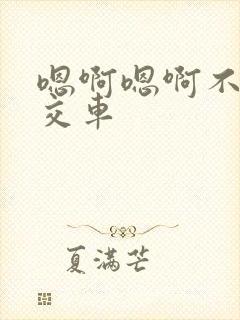 嗯啊嗯啊不
交车
夏满芒